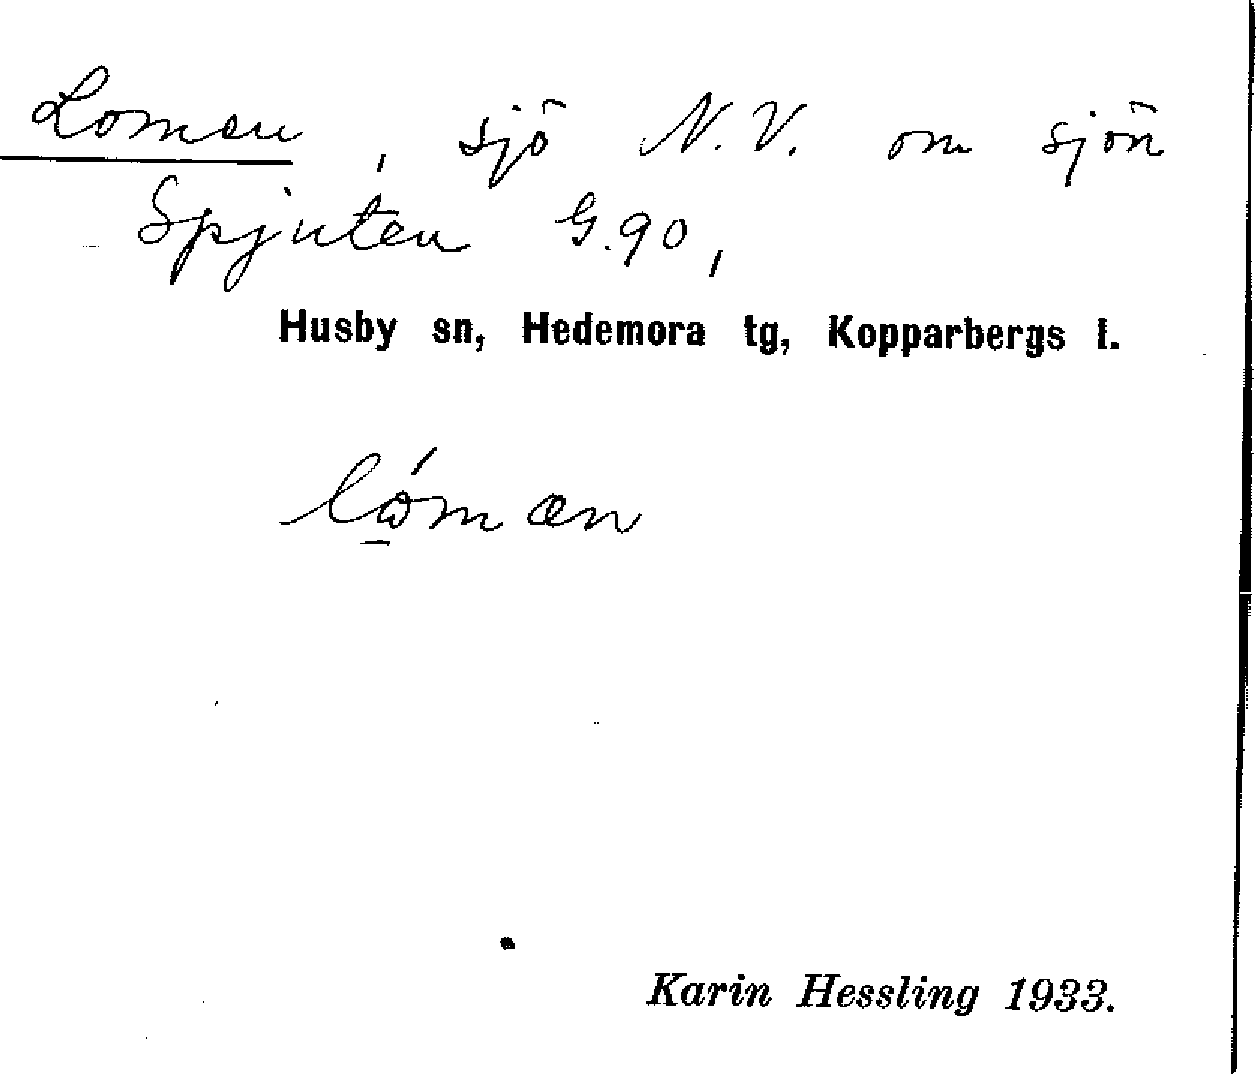 Loman, sjö N.V. om sjön
Spjuten G.90,
Husby sn, Hedemora tg, Kopparbergs l.
lóman
Karin Hessling 1933.